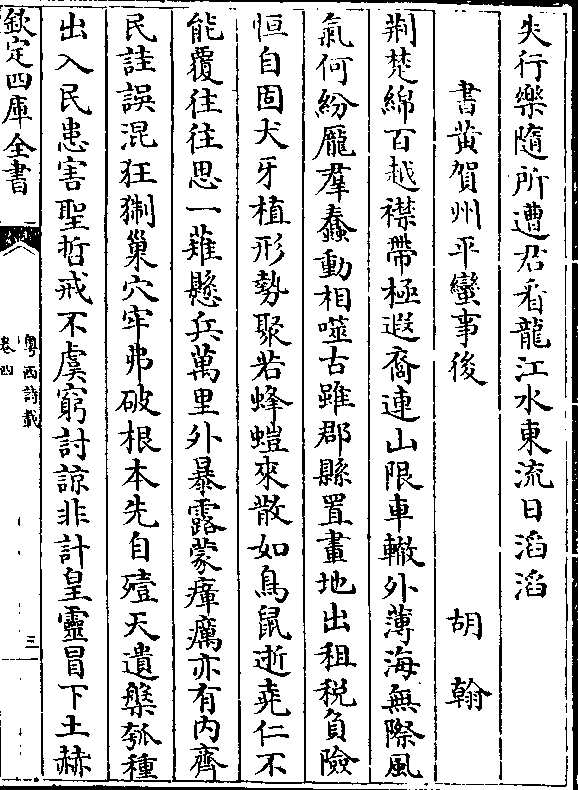 失行樂隨所遭君看龍江水東流日滔滔
書黄賀州平蠻事後　胡翰
荆楚綿百越襟帶極遐裔連山限車轍外薄海無際風
氣何紛厖羣蠢動相噬古雖郡縣置畫地出租税負險
恒自固犬牙植形勢聚若蜂螘來散如鳥鼠逝堯仁不
能覆往往思一薙懸兵萬里外暴露蒙瘴癘亦有内齊
民詿誤混狂猘巢穴牢弗破根本先自殪天遺槃瓠種
出入民患害聖哲戒不虞窮討諒非計皇靈冒下土赫
欽定四庫全書
粤西詩載
卷四
三